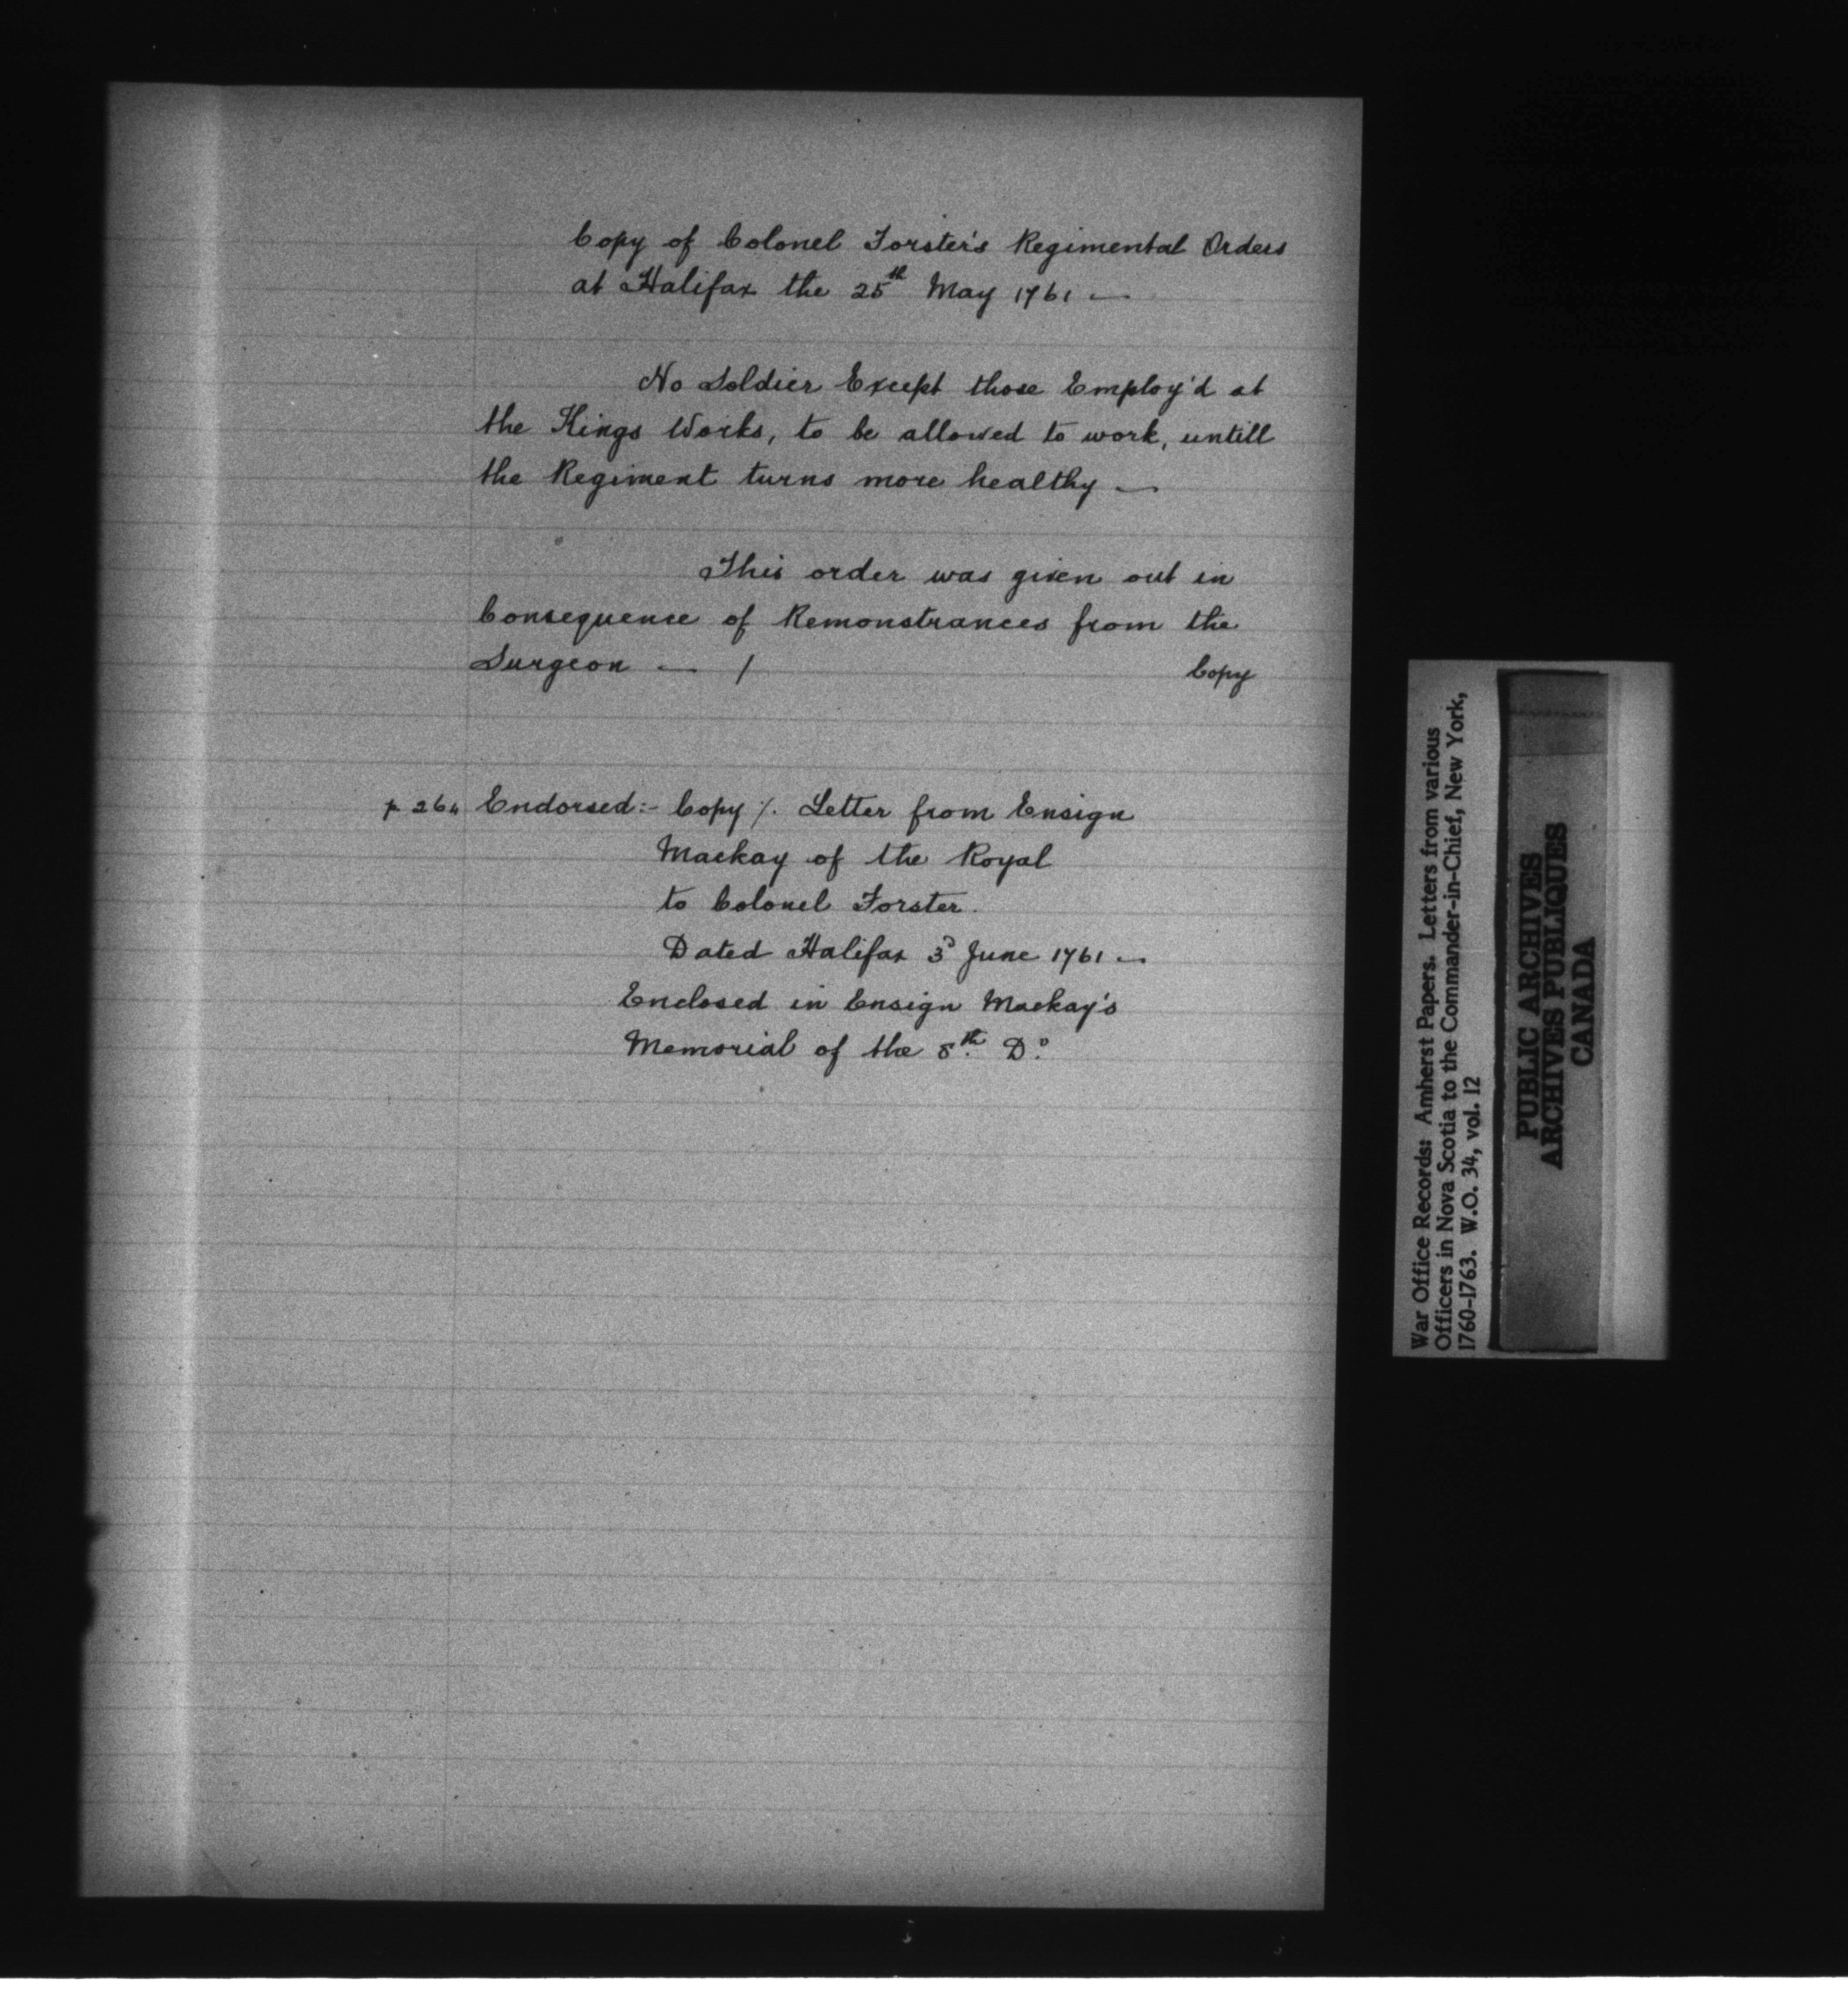 Copy of Colonel Forster's Regimental Orders
at Halifax the 25th May 1761 —
No Soldier Except those Employ'd at
the Kings Works, to be allowed to work, untill
the Regiment turns more healthy —
This order was given out in
Consequence of Remonstrances from the
Surgeon — /
Copy
p 264 Endorsed:- Copy /. Letter from Ensign
Mackay of the Royal
to Colonel Forster.
Dated Halifax 3d June 1761 —
Enclosed in Ensign Mackay's
Memorial of the 8th. Do.
War Office Records: Amherst Papers. Letters from various
Officers in Nova Scotia to the Commander-in-Chief, New York,
1760-1763. W.O. 34, vol. 12
PUBLIC ARCHIVES
ARCHIVES PUBLIQUES
CANADA